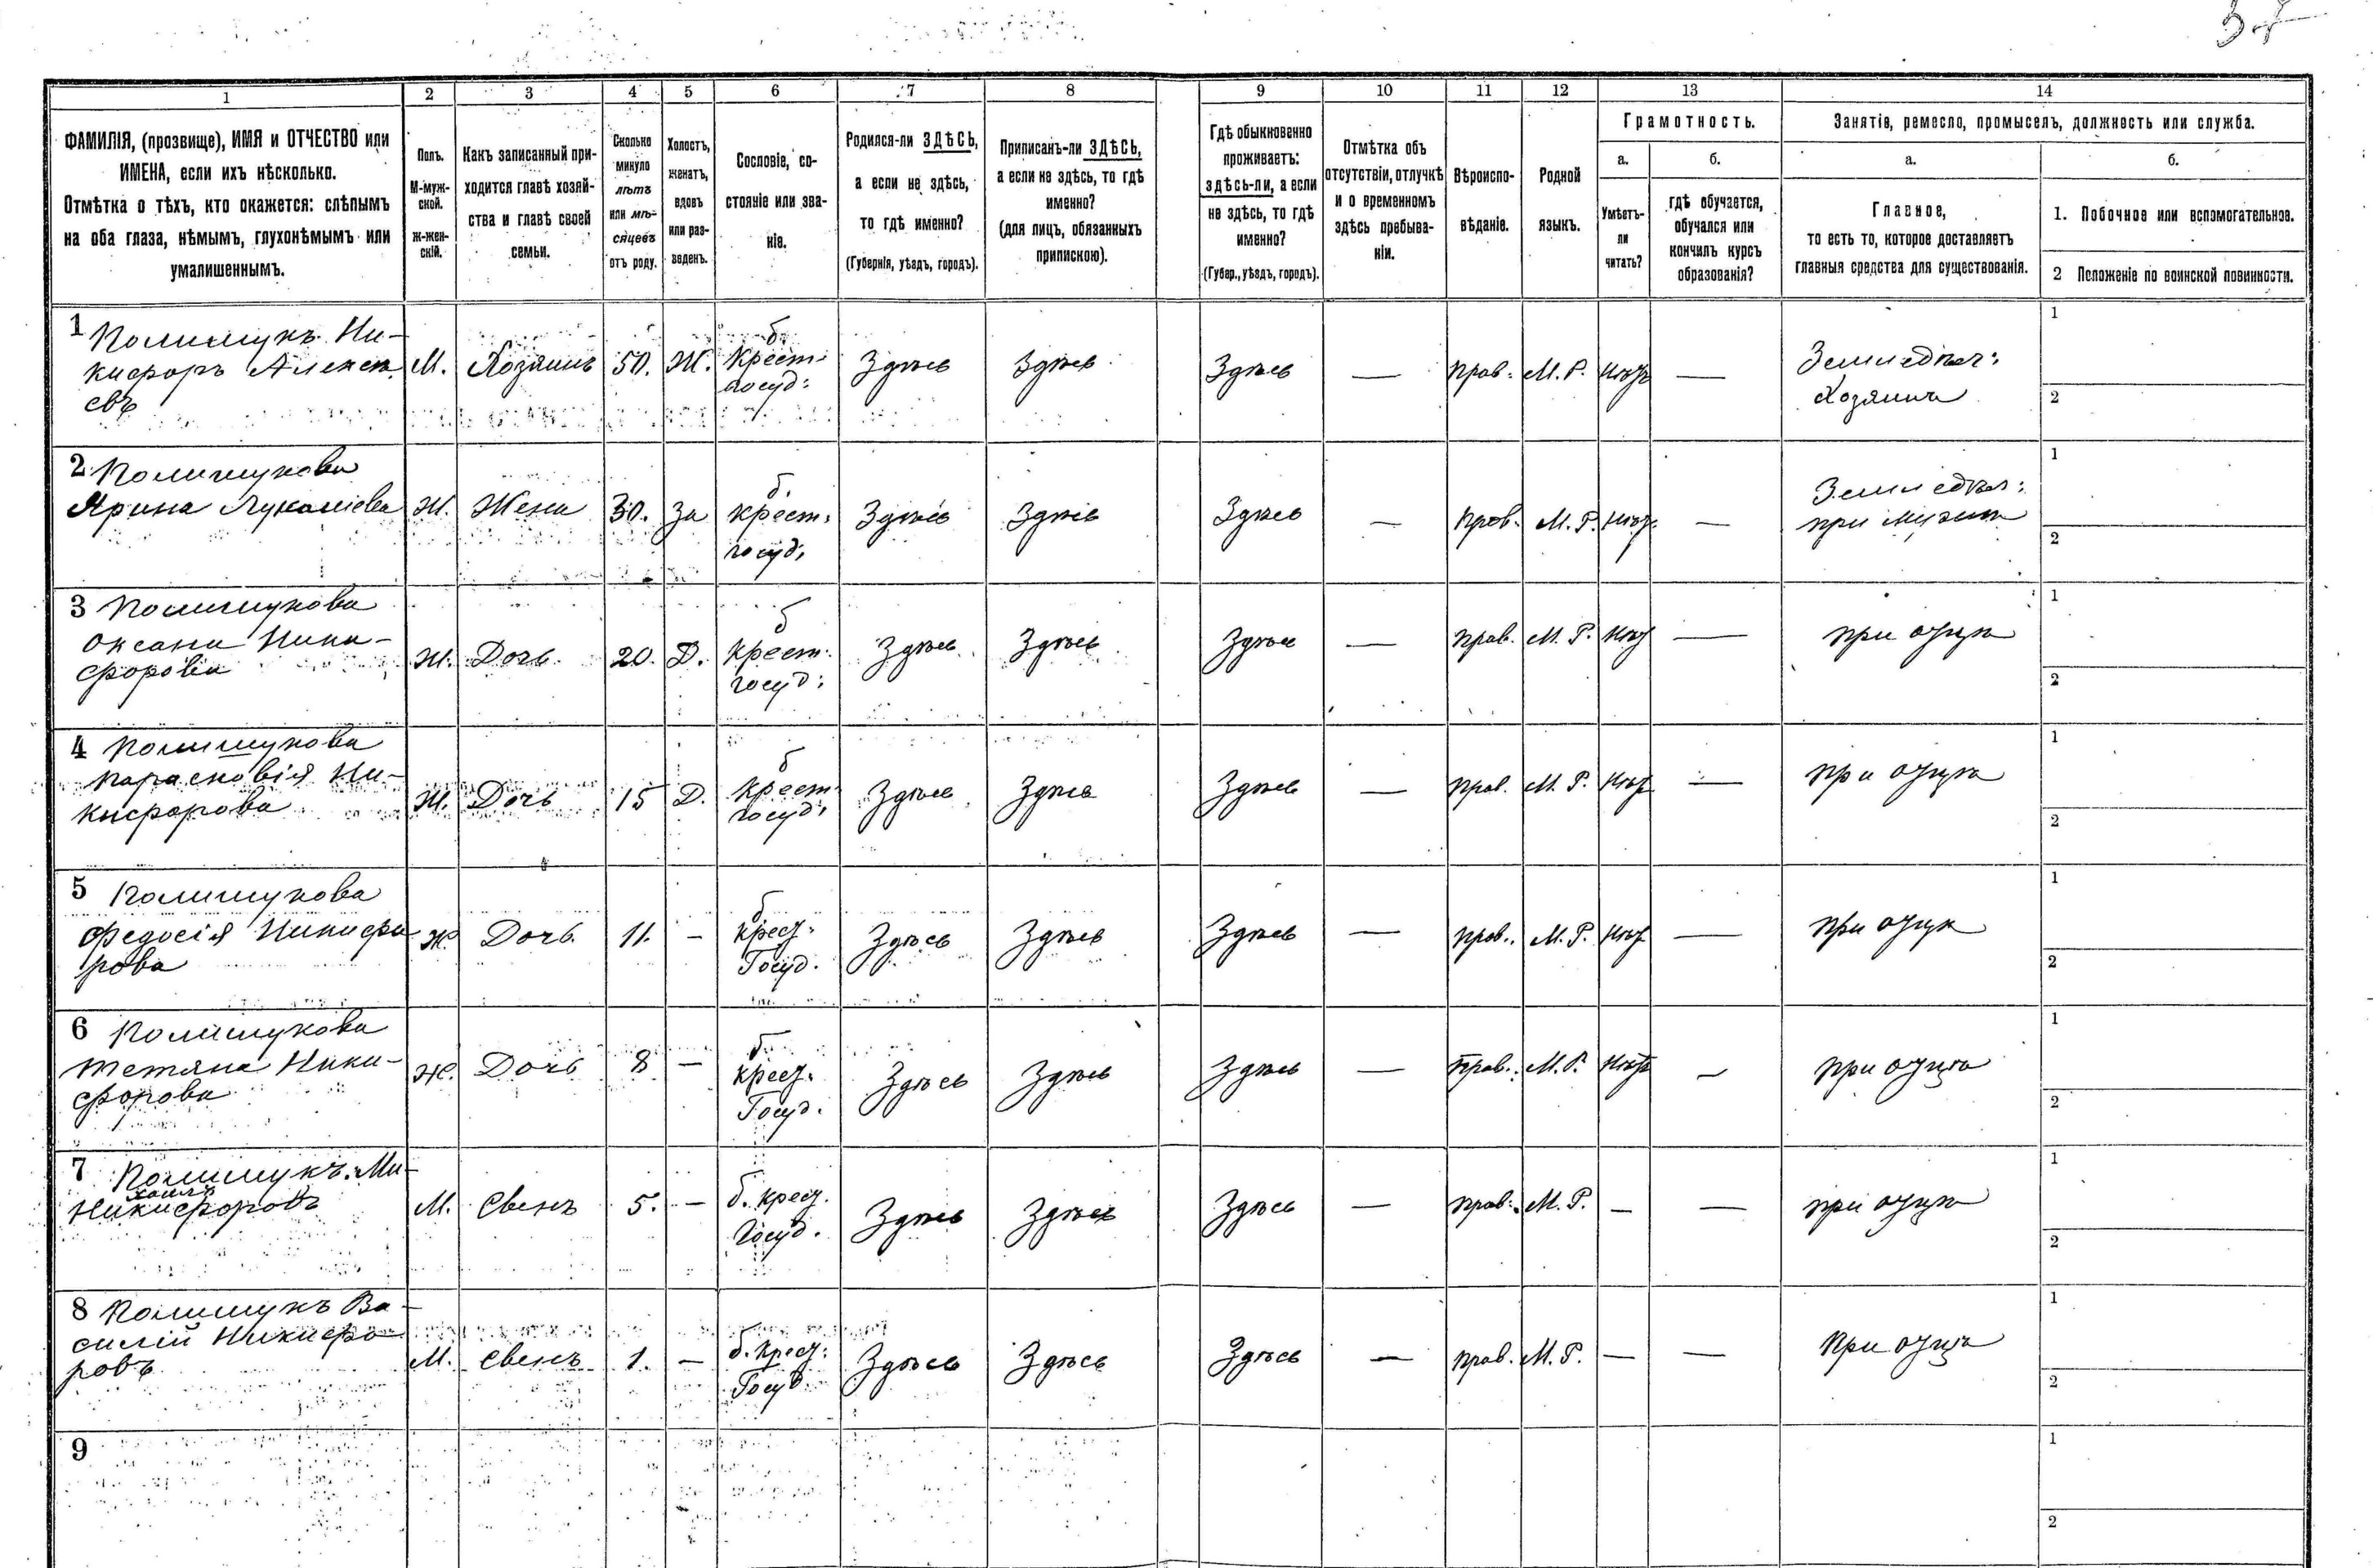 57
1
2
3
4
5
6
7
8
9
10
11
12
13
14
ФАМИЛІЯ, (прозвище), ИМЯ и ОТЧЕСТВО или
ИМЕНА, если ихъ нѣсколько.
Отмѣтка о тѣхъ, кто окажется: слѣпымъ
на оба глаза, нѣмымъ, глухонѣмымъ или
умалишеннымъ.
Полъ.
М-муж-
ской.
Ж-жен-
скій.
Какъ записанный при-
ходится главѣ хозяй-
ства и главѣ своей
семьи.
Сколько
минуло
лѣтъ
или мѣ-
сяцевъ
отъ роду.
Холостъ,
женатъ,
вдовъ
или раз-
веденъ.
Сословіе, со-
стояніе или зва-
ніе.
Родился-ли ЗДѢСЬ,
а если не здѣсь,
то гдѣ именно?
(Губернія, уѣздъ, городъ).
Приписанъ-ли ЗДѢСЬ,
а если не здѣсь, то гдѣ
именно?
(для лицъ, обязанныхъ
припискою).
Гдѣ обыкновенно
проживаетъ:
здѣсь-ли, а если
не здѣсь, то гдѣ
именно?
(Губер., уѣздъ, городъ).
Отмѣтка объ
отсутствіи, отлучкѣ
и о временномъ
здѣсь пребыва-
ніи.
Вѣроиспо-
вѣданіе.
Родной
языкъ.
Грамотность.
а.
Умѣетъ-
ли
читать?
б.
гдѣ обучается,
обучался или
кончилъ курсъ
образованія?
Занятіе, ремесло, промыселъ, должность или служба.
а.
Главное,
то есть то, которое доставляетъ
главныя средства для существованія.
б.
1. Побочное или вспомогательное.
2 Положеніе по воинской повинности.
1 Полищукъ Ни-
кифоръ Алексѣ
евъ
М.
Хозяинъ
50.
Ж.
б.
крест.
госуд:
Здѣсь
Здѣсь
Здѣсь
—
прав.
М. Р.
Нѣтъ
—
Земледѣл:
Хозяинъ
1
2
2 Полищукова
Ярина
Ж.
Жена
30.
За
б.
крест.
госуд.
Здѣсь
Здѣсь
Здѣсь
—
прав.
М. Р.
Нѣт.
—
Земледѣл:
при мужѣ
1
2
3 Полищукова
Оксана Ники-
форова
Ж.
Дочь
20.
Д.
б
крест.
госуд:
Здѣсь
Здѣсь
Здѣсь
—
прав.
М. Р.
Нѣт
—
при отцѣ
1
2
4 Полищукова
Парасковія Ни-
кифорова
Ж.
Дочь
15
Д.
б
крест
госуд.
Здѣсь
Здѣсь
Здѣсь
—
прав.
М. Р.
Нѣт
—
при отцѣ
1
2
5 Полищукова
Федосія Никифо
рова
Ж.
Дочь
11.
—
б
крест.
Госуд.
Здѣсь
Здѣсь
Здѣсь
—
прав.
М. Р.
Нѣт
—
при отцѣ
1
2
6 Полищукова
Тетяна Ники-
форова
Ж.
Дочь
8
—
б.
крест.
Госуд.
Здѣсь
Здѣсь
Здѣсь
—
прав.
М. Р.
Нѣтъ
—
при отцѣ
1
2
7 Полищукъ Ми-
хаилъ
Никифоровъ
М.
Свенъ
5.
—
б. крест.
Госуд.
Здѣсь
Здѣсь
Здѣсь
—
прав.
М. Р.
—
—
при отцѣ
1
2
8 Полищукъ Ва-
силій Никифо
ровъ
М.
Свенъ
1.
—
б. крест.
Госуд.
Здѣсь
Здѣсь
Здѣсь
—
прав.
М. Р.
—
—
При отцѣ
1
2
9
1
2